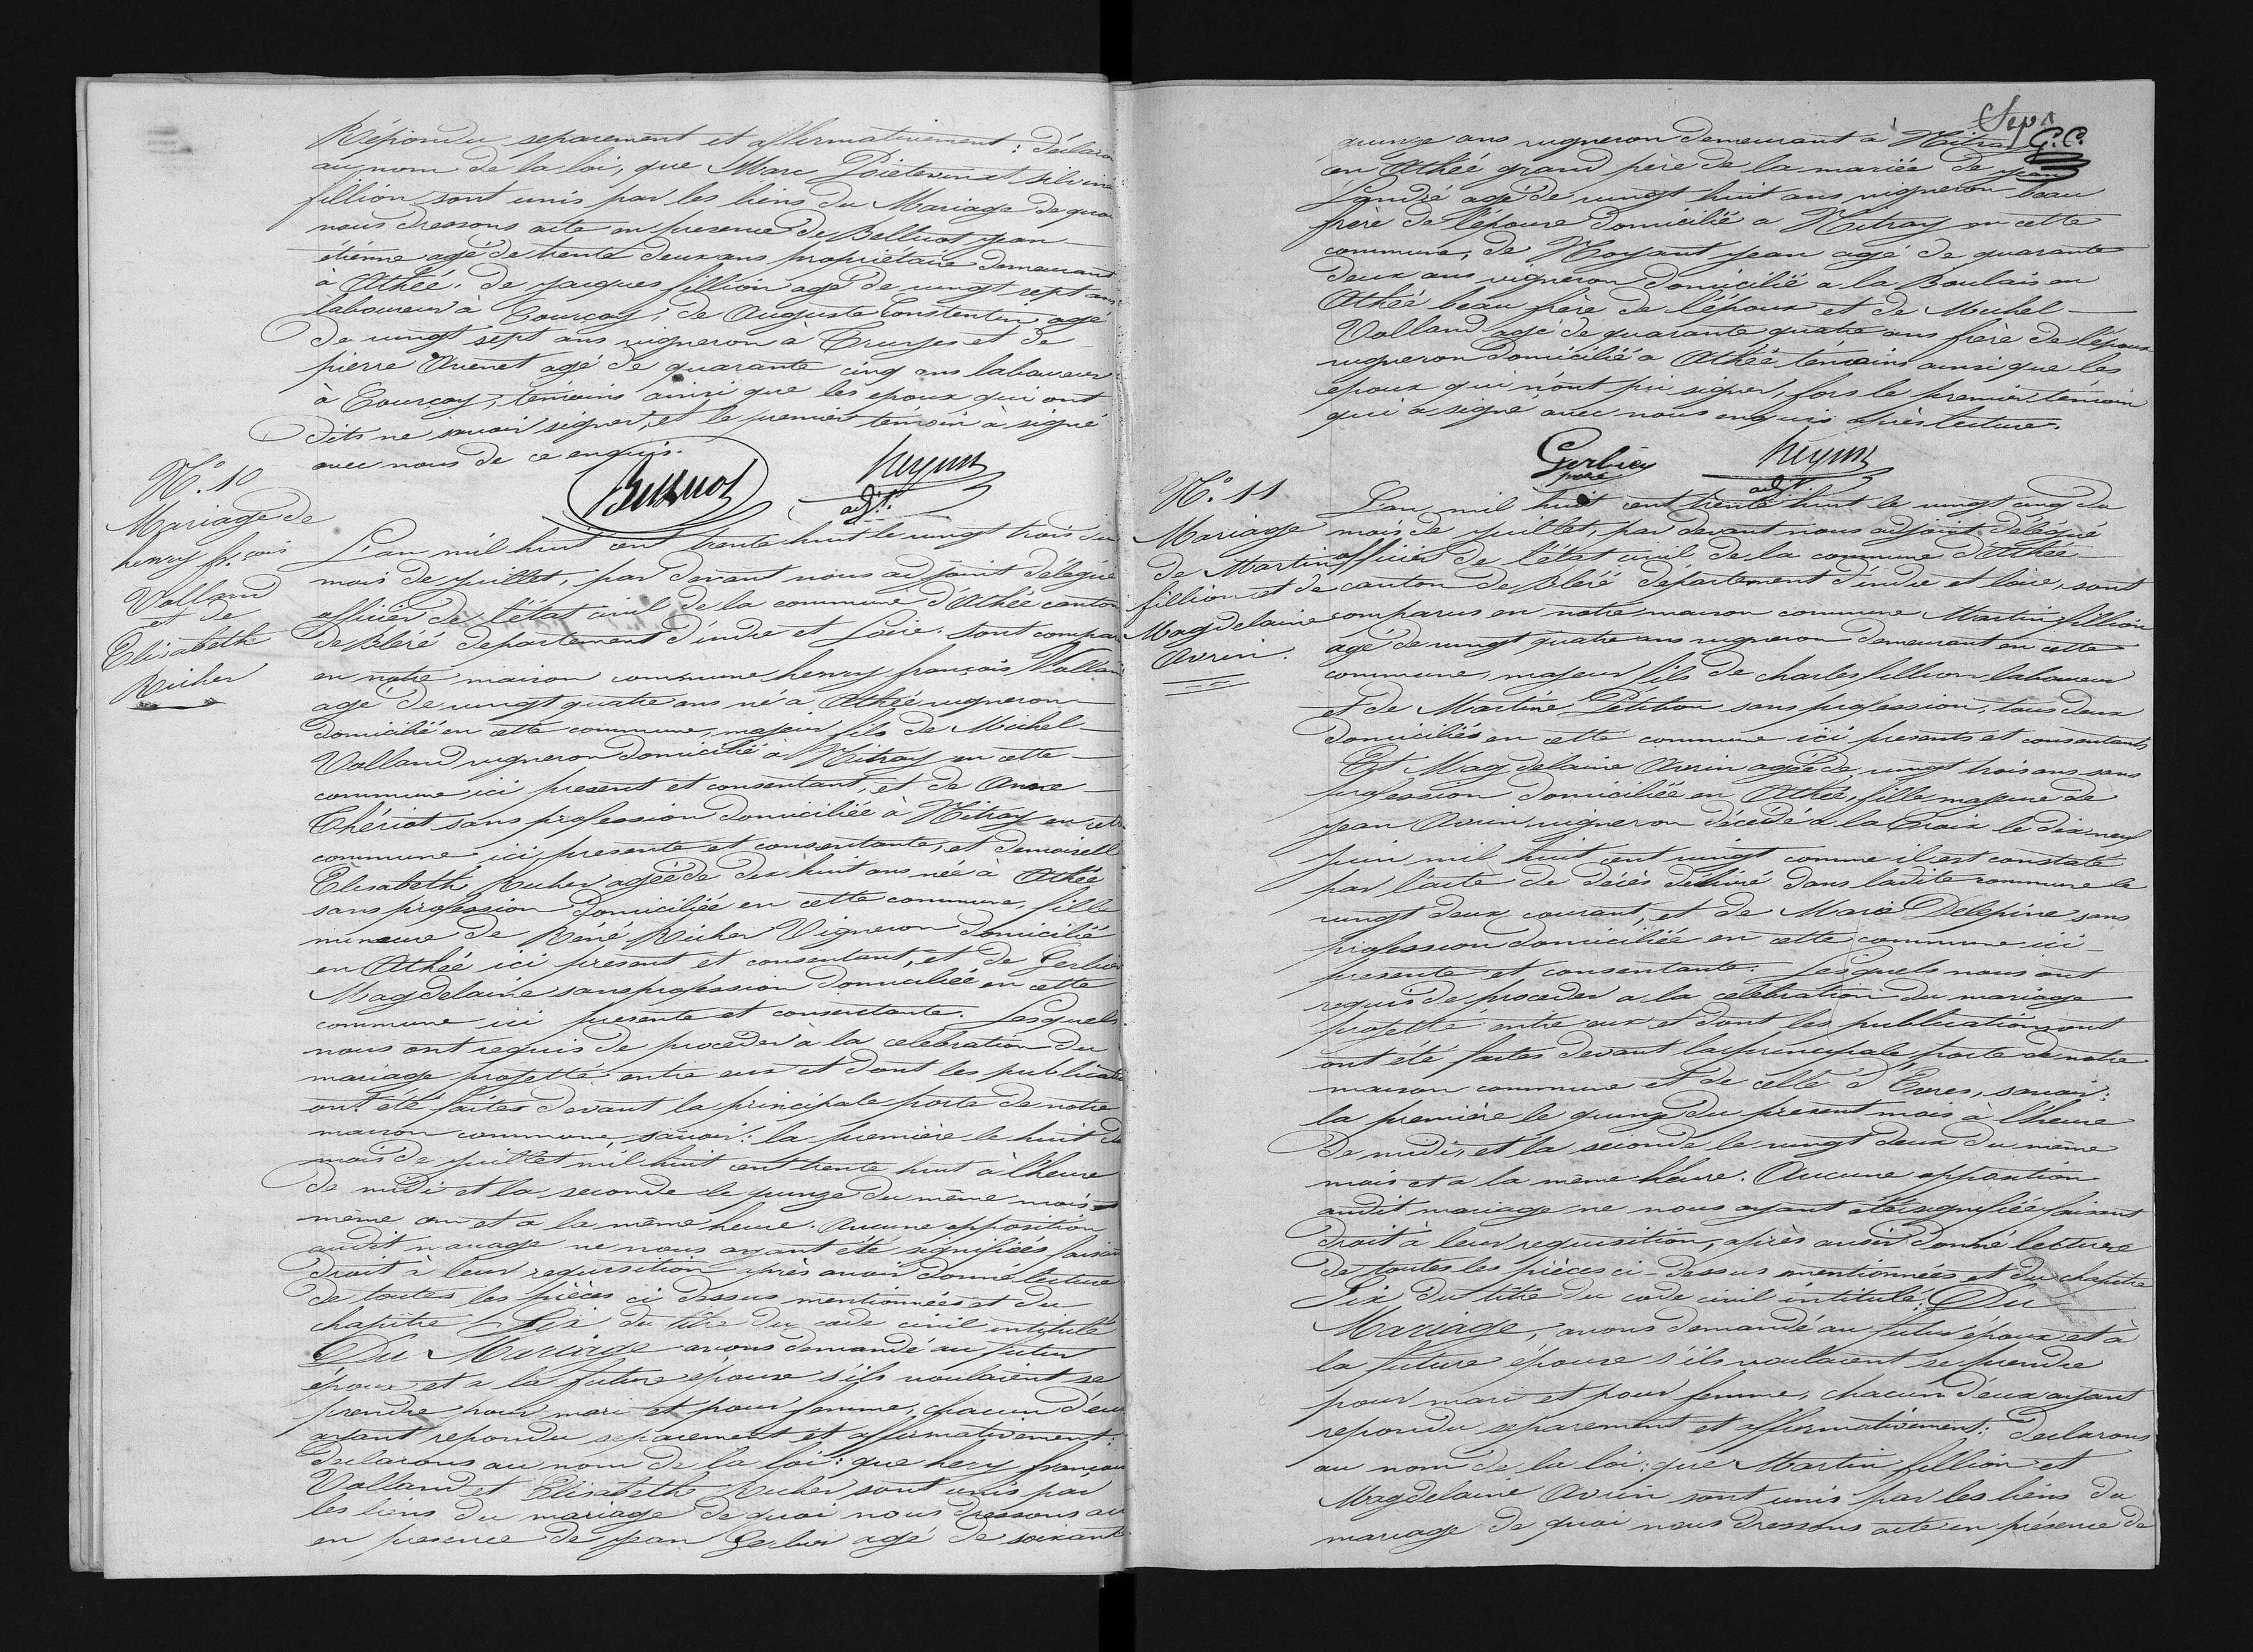 Répondu separement et affirmativement : déclarons
au nom de la loi, que Marc Poitevin et silvine
fillion sont unis par les liens du Mariage de quoi
nous dressons acte en presence de Belluot jean
étienne agé de trente deux ans propriétaire demeurant
à Athée, de jacques fillion agé de vingt sept ans
laboureur à Courçay, de Auguste Constentin agé
de vingt sept ans vigneron à Truyes et de
pierre Avenet agé de quarante cinq ans laboureur
à Courçay, témoins ainsi que les epoux qui ont
dits ne savoir signer, et le premier témoin à signé
avec nous de ce enquis.
Belluot
adjt.
N°. 10
Mariage de
henry fçois
Volland
et de
Elisabethe
Richer
L'an mil huit cent trente huit le vingt trois du
mois de juillet, par devant nous adjoint délégué
officier de l'état civil de la commune d'Athée canton
de Bléré departement d'indre et Loire. sont comparus
en notre maison commune henry françois Volland
agé de vingt quatre ans né à Athée vigneron
domicilié en cette commune, majeur fils de Michel
Volland vigneron domicilié à Nitray en cette
commune ici present et consentant, et de Anne
Thériot sans profession domiciliée à Nitray en cette
commune ici presente et consentante, et demoiselle
Elisabeth Richer agée de dix huit ans née à Athée
sans profession domiciliée en cette commune, fille
mineure de Réné Richer Vigneron domicilié
en Athée ici présent et consentant, et de Gerbier
Magdelaine sans profession domiciliée en cette
commune ici presente et consentante. Lesquels
nous ont requis de procéder à la celebration du
mariage projetté entre eux et dont les publications
ont été faites devant la principale porte de notre
maison commune, savoir : la première le huit du
mois de juillet mil huit cent trente huit à l'heure
de midi et la seconde le quinze du même mois
même an et a la même heure. Aucune opposition
audit mariage ne nous ayant été signifiées faisant
droit à leur requisition après avoir donné lecture
de toutes les pièces ci dessus mentionnées et du
chapitre Six du titre du code civil intitulé
Du Mariage avons demandé au futur
époux et a la future épouse s'ils voulaient se
prendre pour mari et pour femme, chacun d'eux
ayant repondu separement et affirmativement :
Declarons au nom de la loi : que hery françois
Volland et Elisabethe Richer sont unis par
les liens du mariage de quoi nous dressons acte
en presence de jean Gerbier agé de soixante
Sept
G.C.
quinze ans vigneron demeurant à Nitray
en Athée grand père de la mariée de jean
Landré agé de vingt huit ans vigneron beau
frère de l'épouse domicilié a Nitray en cette
commune, de Moyant jean agé de quarante
deux ans vigneron domicilié a la Boulais en
Athée beau frère de l'époux et de Michel
Volland agé de quarante quatre ans frère de l'époux
vigneron domicilié a Athée témoins ainsi que les
epoux qui n'ont pu signer, fors le premier témoin
qui a signé avec nous enquis après lecture.
Gerbier
père
adjt.
N°. 11
Mariage
de Martin
fillion et de
Magdelaine
Avrin.
L'an mil huit cent trente huit le vingt cinq du
mois de juillet, par devant nous adjoint délégué
officier de l'état civil de la commune d'Athée
canton de Bléré département d'indre et loire, sont
comparus en notre maison commune Martin fillion
agé de vingt quatre ans vigneron demeurant en cette
commune, majeur fils de charles fillion laboureur
et de Martine Pétibon sans profession, tous deux
domiciliés en cette commune ici presents et consentants
Et Magdelaine Avrin agée de vingt trois ans sans
profession domiciliée en Athée, fille majeure de
jean Avrin vigneron décédé a la Croix le dix neuf
juin mil huit cent vingt comme il est constaté
par l'acte de décès délivré dans ladite commune le
vingt deux courant, et de Marie Delepine sans
profession domiciliée en cette commune ici
presente et consentante. Lesquels nous ont
requis de proceder a la celebration du mariage
projetté entre eux et dont les publications ont
ont été faites devant la principale porte de notre
maison commune et de celle d'Evres, savoir :
la première le quinze du present mois à l'heure
de midi, et la seconde le vingt deux du même
mois et a la même heure. Aucune opposition
audit mariage ne nous ayant été signifiée faisant
droit à leur requisition, après avoir donné lecture
de toutes les pièces ci-dessus mentionnées et du chapitre
Six du titre du code civil intitulé : Du
Mariage, avons demandé au futur époux et à
la future épouse s'ils voulaient se prendre
pour mari et pour femme, chacun d'eux ayant
repondu separement et affirmativement : declarons
au nom de la loi : que Martin fillion et
Magdelaine Avrin sont unis par les liens du
mariage de quoi nous dressons acte en présence de